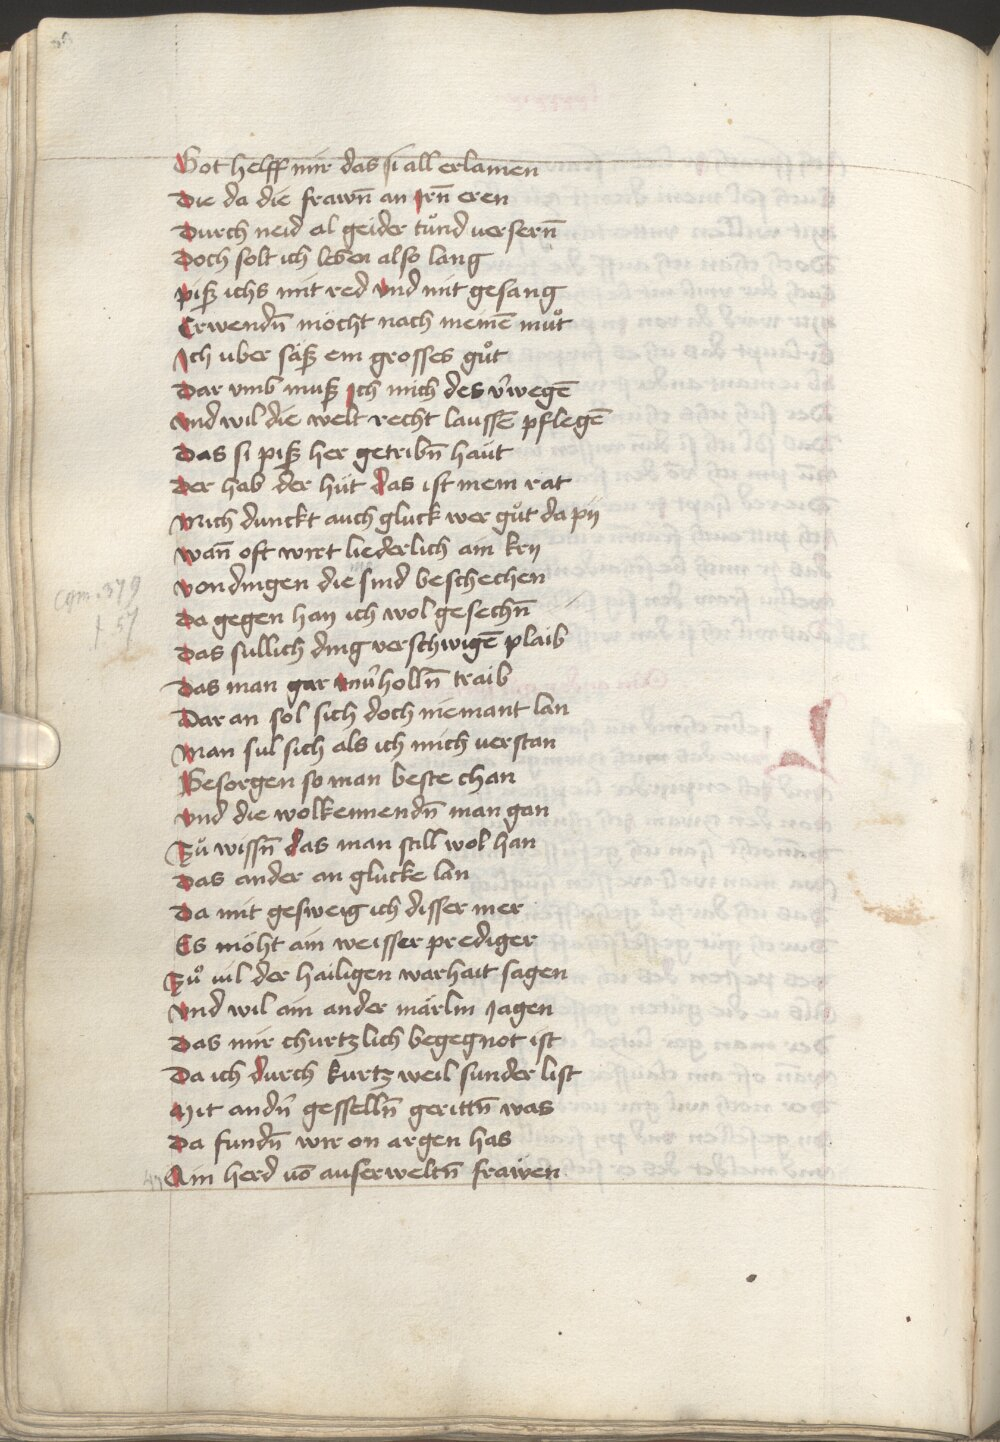 Got helff mir das si all erlamen
Die da die frawn̄ an Irn̄ eren
Durch neid al geider tuͦnd versern̄
Doch solt ich leben also lang
piſz ichs mit red vnd mit gesang
Erwendn̄ möcht nach meinē muͦt
Ich uber säſz ein grosses guͦt
Dar vmb muſz Ich mich des v̄wegē
Vnd wil die welt recht laussē pflegē
Das si piſz her getribn̄ haüt
Der hab der hüt das ist mein rät
Mich dunckt auch gluck wer guͦt da pij
Wan̄ oft wirt liederlich ain krij
Von dingen die sind beschechen
Da gegen han ich wol gesechn̄
Das sullich ding verschwigē plaib
Das man gar vnv̄holln̄ traib
Dar an sol sich doch niemant lan
Man sul sich als ich mich verstan
Besorgen so man beste chan
Vnd die wolkennendn̄ man gan
Zuͦ wissn̄ das man still wol han
Das ander an glucke lan
Da mit gesweig ich disser mer
Es möht ain weisser prediger
Zuͦ vil der hailigen warhait sagen
Vnd wil ain ander märlin Jagen
Das mir churtzlich begegnot ist
Da ich durch kurtz weil sunder list
Mit andn̄ gesselln̄ gerittn̄ was
Da fundn̄ wir on argen has
Ain herd vō auserweltn̄ frawen
cgm. 379
f. 57